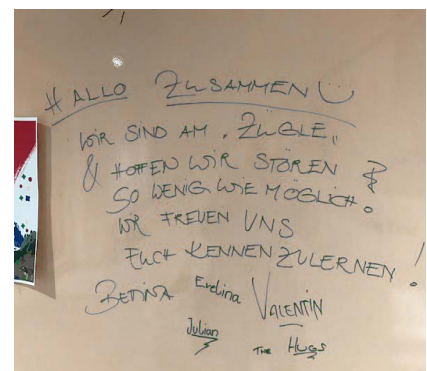 HALLO ZUSAMMEN Ü
WIR SIND AM "ZÜGLE"
& HOFFEN WIR STÖREN
SO WENIG WIE MÖGLICH.
WIR FREUEN UNS
EUCH KENNENZULERNEN!
BETTINA Evelina VALENTIN
Julian THE HUGS